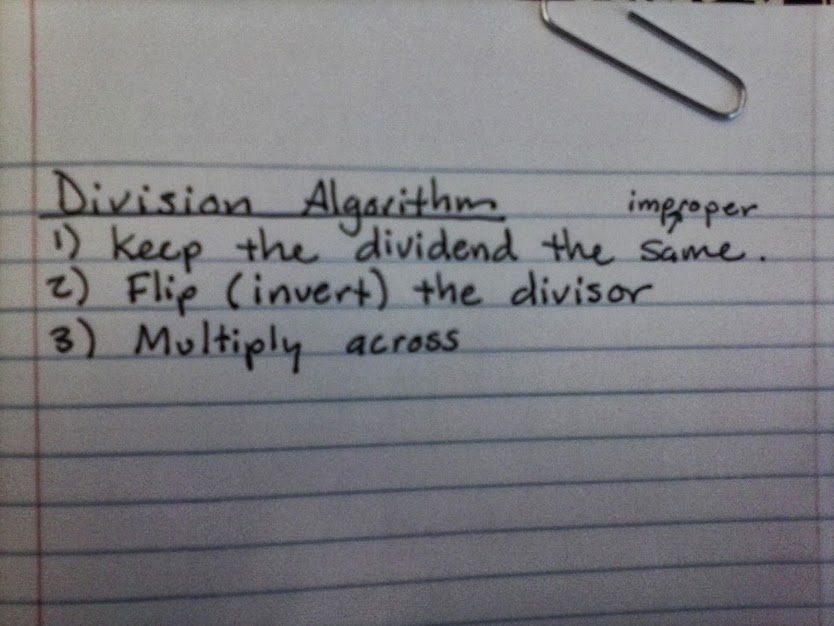 Division Algorithm improper
1) Keep the dividend the same.
2) Flip (invert) the divisor
3) Multiply across